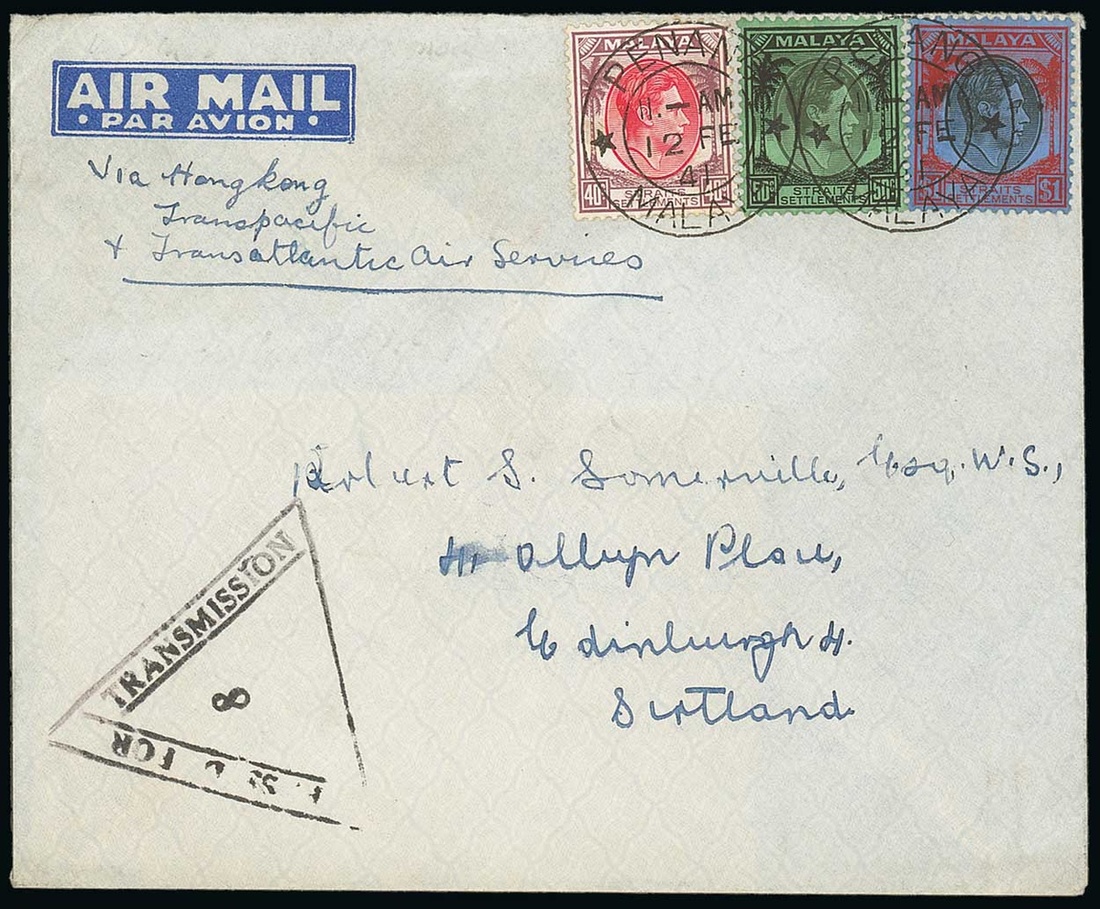 AIR MAIL
· PAR AVION ·
Via Hongkong
Transpacific
& Transatlantic Air Services
MALAYA
40c
STRAITS
SETTLEMENTS
MALAYA
50c
STRAITS
SETTLEMENTS
50c
MALAYA
STRAITS
SETTLEMENTS
$1
PENANG
11 - AM
12 FE
41
MALAYA
PENANG
AM
12 FE
MALAYA
Robert S. Somerville, Esq. W.S.,
Place,
Edinburgh 4.
Scotland
TRANSMISSION
8
FOR